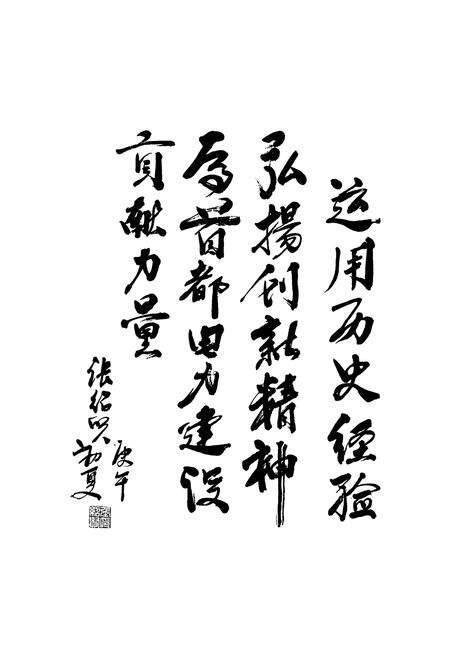 运用历史经验
弘揚创新精神
为首都电力建设
貢献力量
庚午
初夏
张绍